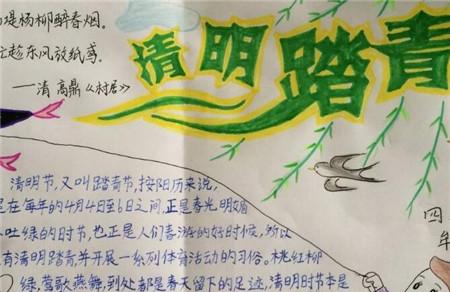 堤杨柳醉春烟。
趁东风放纸鸢。
——清 高鼎《村居》
清明踏青
清明节,又叫踏青节,按阳历来说,
是在每年的4月4日至6日之间,正是春光明媚
吐绿的时节,也正是人们春游的好时候,所以
有清明踏青,并开展一系列体育活动的习俗。桃红柳
绿,莺歌燕舞,到处都是春天留下的足迹,清明时节本是
四
年